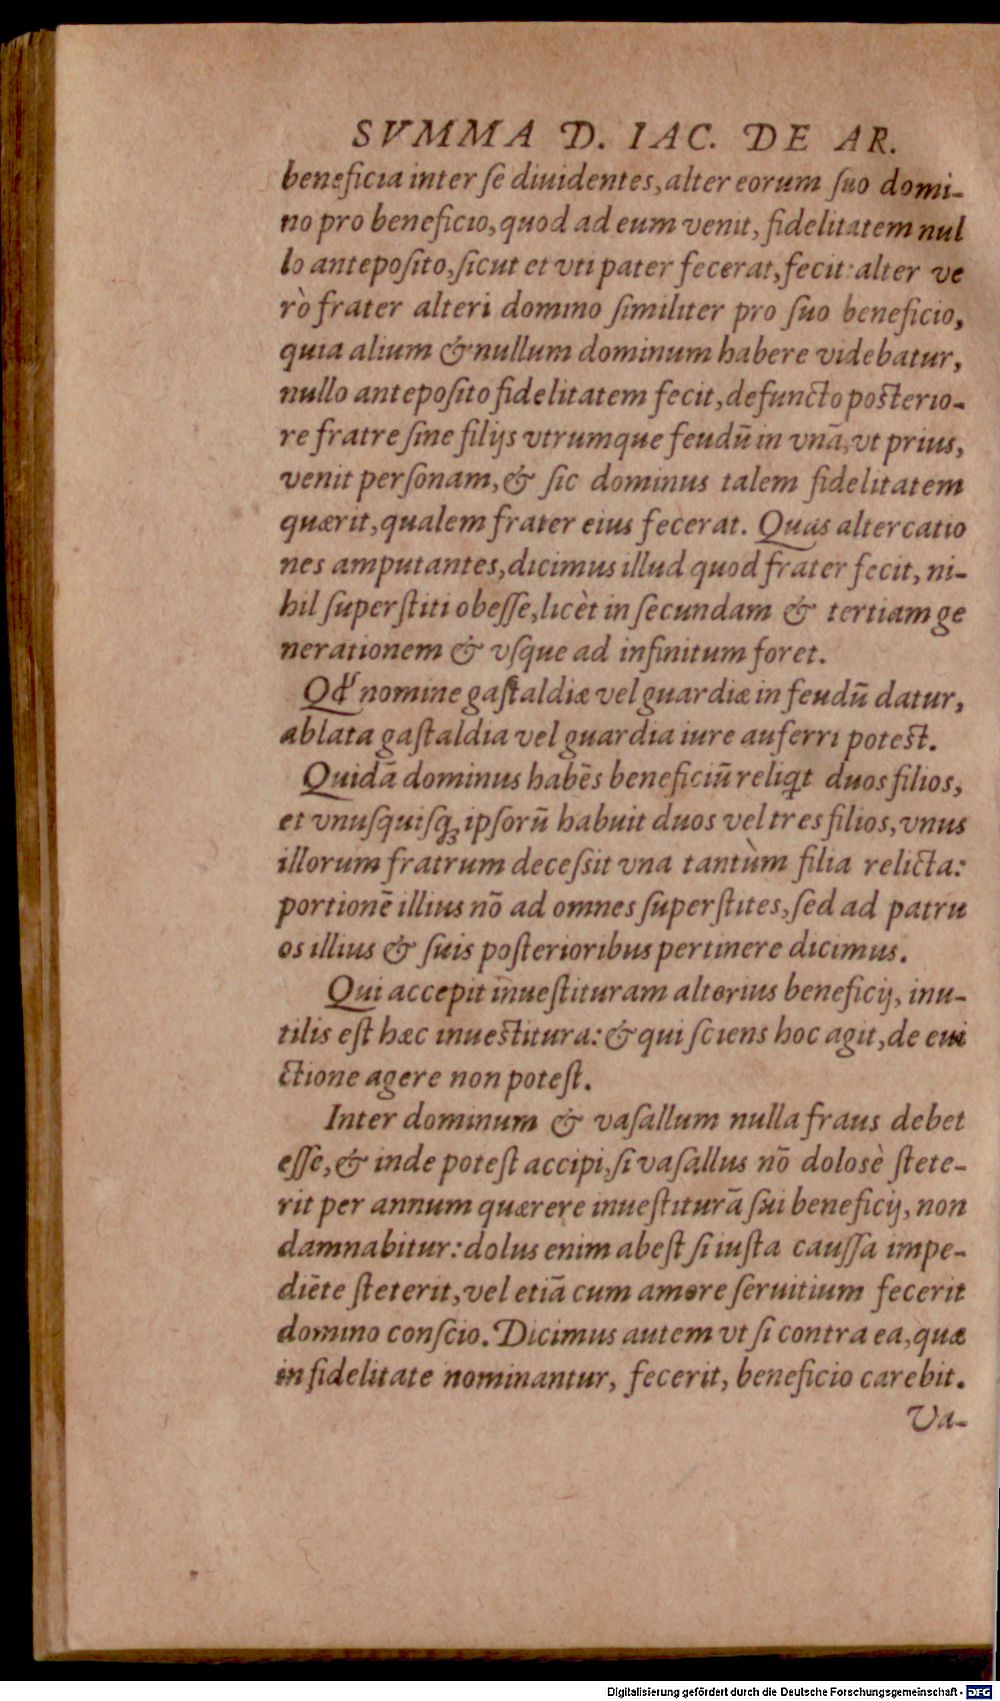 SVMMA D. IAC. DE AR.
beneficia inter ſe diuidentes, alter eorum ſuo domi-
no pro beneficio, quod ad eum venit, fidelitatem nul
lo antepoſito, ſicut et vti pater fecerat, fecit: alter ve
rò frater alteri domino ſimiliter pro ſuo beneficio,
quia alium & nullum dominum habere videbatur,
nullo antepoſito fidelitatem fecit, defuncto poſterio-
re fratre ſine filijs vtrumque feudū in vnā, vt prius,
venit perſonam, & ſic dominus talem fidelitatem
quærit, qualem frater eius fecerat. Quas altercatio
nes amputantes, dicimus illud quod frater fecit, ni-
hil ſuperſtiti obeſſe, licèt in ſecundam & tertiam ge
nerationem & vſque ad infinitum foret.
Qđ nomine gaſtaldiæ vel guardiæ in feudū datur,
ablata gaſtaldia vel guardia iure auferri poteſt.
Quidā dominus habēs beneficiū reliqt duos filios,
et vnuſquiſq; ipſorū habuit duos vel tres filios, vnus
illorum fratrum deceſsit vna tantùm filia relicta:
portionē illius nō ad omnes ſuperſtites, ſed ad patru
os illius & ſuis poſterioribus pertinere dicimus.
Qui accepit inueſtituram alterius beneficij, inu-
tilis eſt hæc inueſtitura: & qui ſciens hoc agit, de eui
ctione agere non poteſt.
Inter dominum & vaſallum nulla fraus debet
eſſe, & inde poteſt accipi, ſi vaſallus nō dolosè ſtete-
rit per annum quærere inueſtiturā ſui beneficij, non
damnabitur: dolus enim abeſt ſi iuſta cauſſa impe-
diēte ſteterit, vel etiā cum amore ſeruitium fecerit
domino conſcio. Dicimus autem vt ſi contra ea, quæ
in fidelitate nominantur, fecerit, beneficio carebit.
Va-
Digitalisierung gefördert durch die Deutsche Forschungsgemeinschaft - DFG